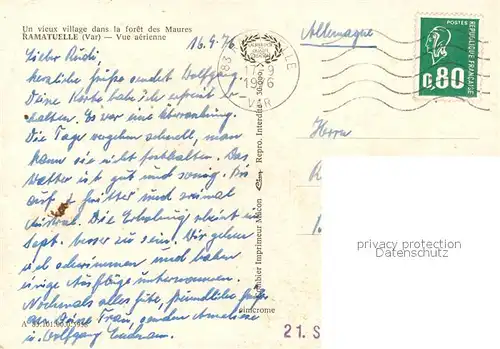 Un vieux village dans la forêt des Maures
RAMATUELLE (Var) — Vue aérienne
16.9.76
Lieber Rudi,
herzliche Grüße sendet Wolfgang.
Deine Karte hab ich erfreut er-
halten. Es war eine Überraschung.
Die Tage vergehen schnell, man
kann sie nicht festhalten. Das
Wetter ist gut und sonnig. Bis
auf Gewitter und
Die Erholung scheint im
Sept. besser zu sein. Wir gehen
viel schwimmen und haben
einige Ausflüge unternommen.
Nochmals alles Gute, freundliche Grüße
an Deine Frau, senden Anneliese
u. Wolfgang
Combier Imprimeur Mâcon Repro. Interdite
cimcrome
83
1976
VAR
Allemagne
POSTES
RÉPUBLIQUE FRANÇAISE
0,80
Herrn
privacy protection
Datenschutz
21. S